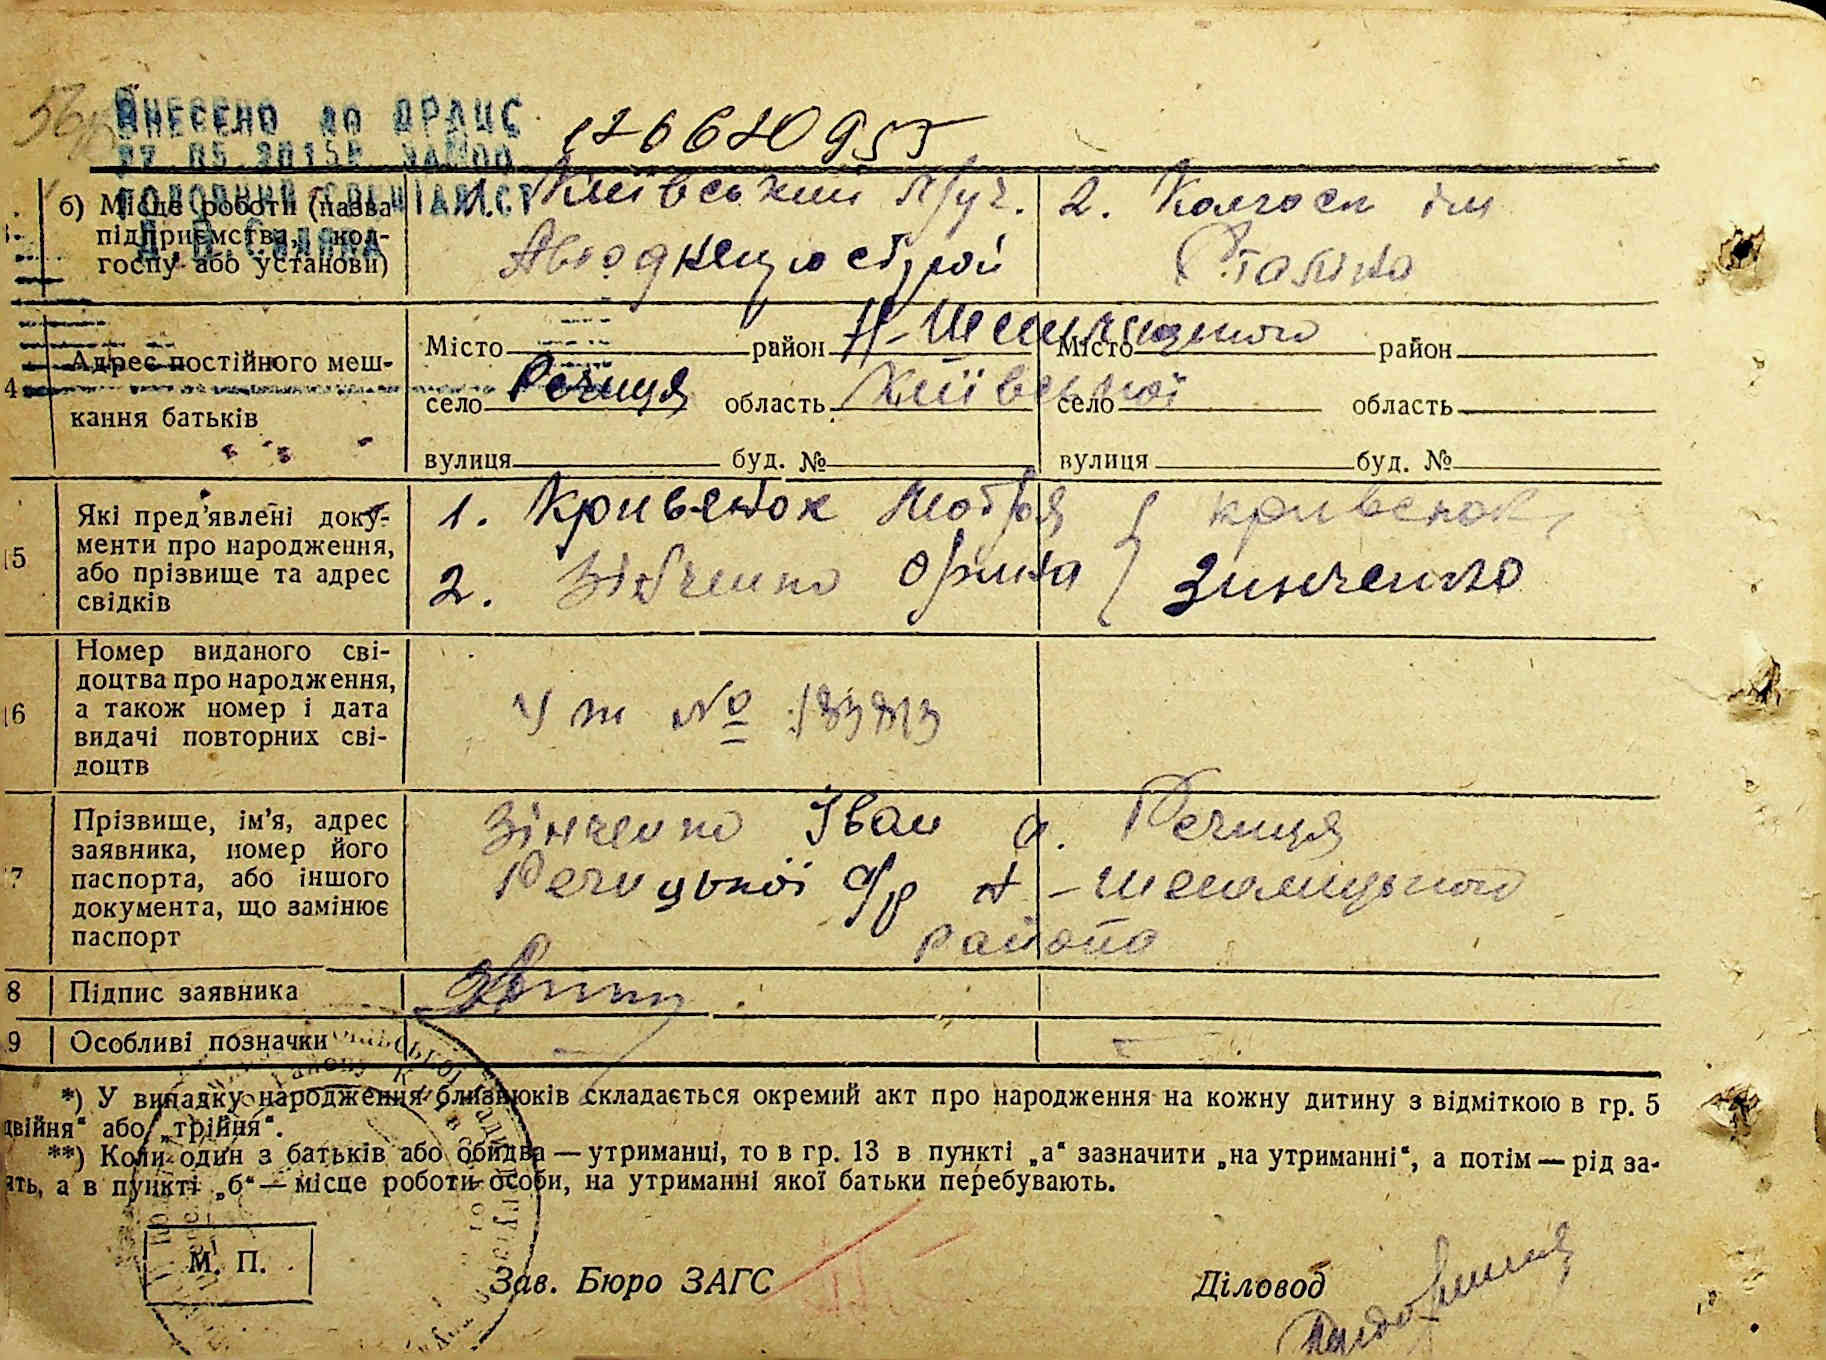 ВНЕСЕНО до ДРАЦС
27 05 2015
ГОЛОВНИЙ СПЕЦІАЛІСТ
б) Місце роботи (назва підприємства, колгоспу або установи)
1. Київський
2. Колгосп ім
Сталіна
Адрес постійного мешкання батьків
Місто район Н-Шепелицького
село Речиця область Київської
вулиця буд. №
Місто район
село область
вулиця буд. №
15
Які пред'явлені документи про народження, або прізвище та адрес свідків
1. Кривенок Мотря } Кривенок
2. Зінченко Орина } Зинченко
16
Номер виданого свідоцтва про народження, а також номер і дата видачі повторних свідоцтв
№
Прізвище, ім'я, адрес заявника, номер його паспорта, або іншого документа, що замінює паспорт
Зінченко Іван с. Речиця
Речицької с/р Н-Шепелицького
района
8 Підпис заявника
9 Особливі позначки
*) У випадку народження близнюків складається окремий акт про народження на кожну дитину з відміткою в гр. 5
двійня“ або „трійня“.
**) Коли один з батьків або обидва — утриманці, то в гр. 13 в пункті „а“ зазначити „на утриманні“, а потім — рід за-
ять, а в пункті „б“ — місце роботи особи, на утриманні якої батьки перебувають.
М. П.
Зав. Бюро ЗАГС
Діловод